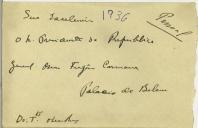 Sua Excelencia 1936
Pessoal
O Sr. Presidente da Republica
General Oscar Fragoso Carmona
Palacio de Belem
Do